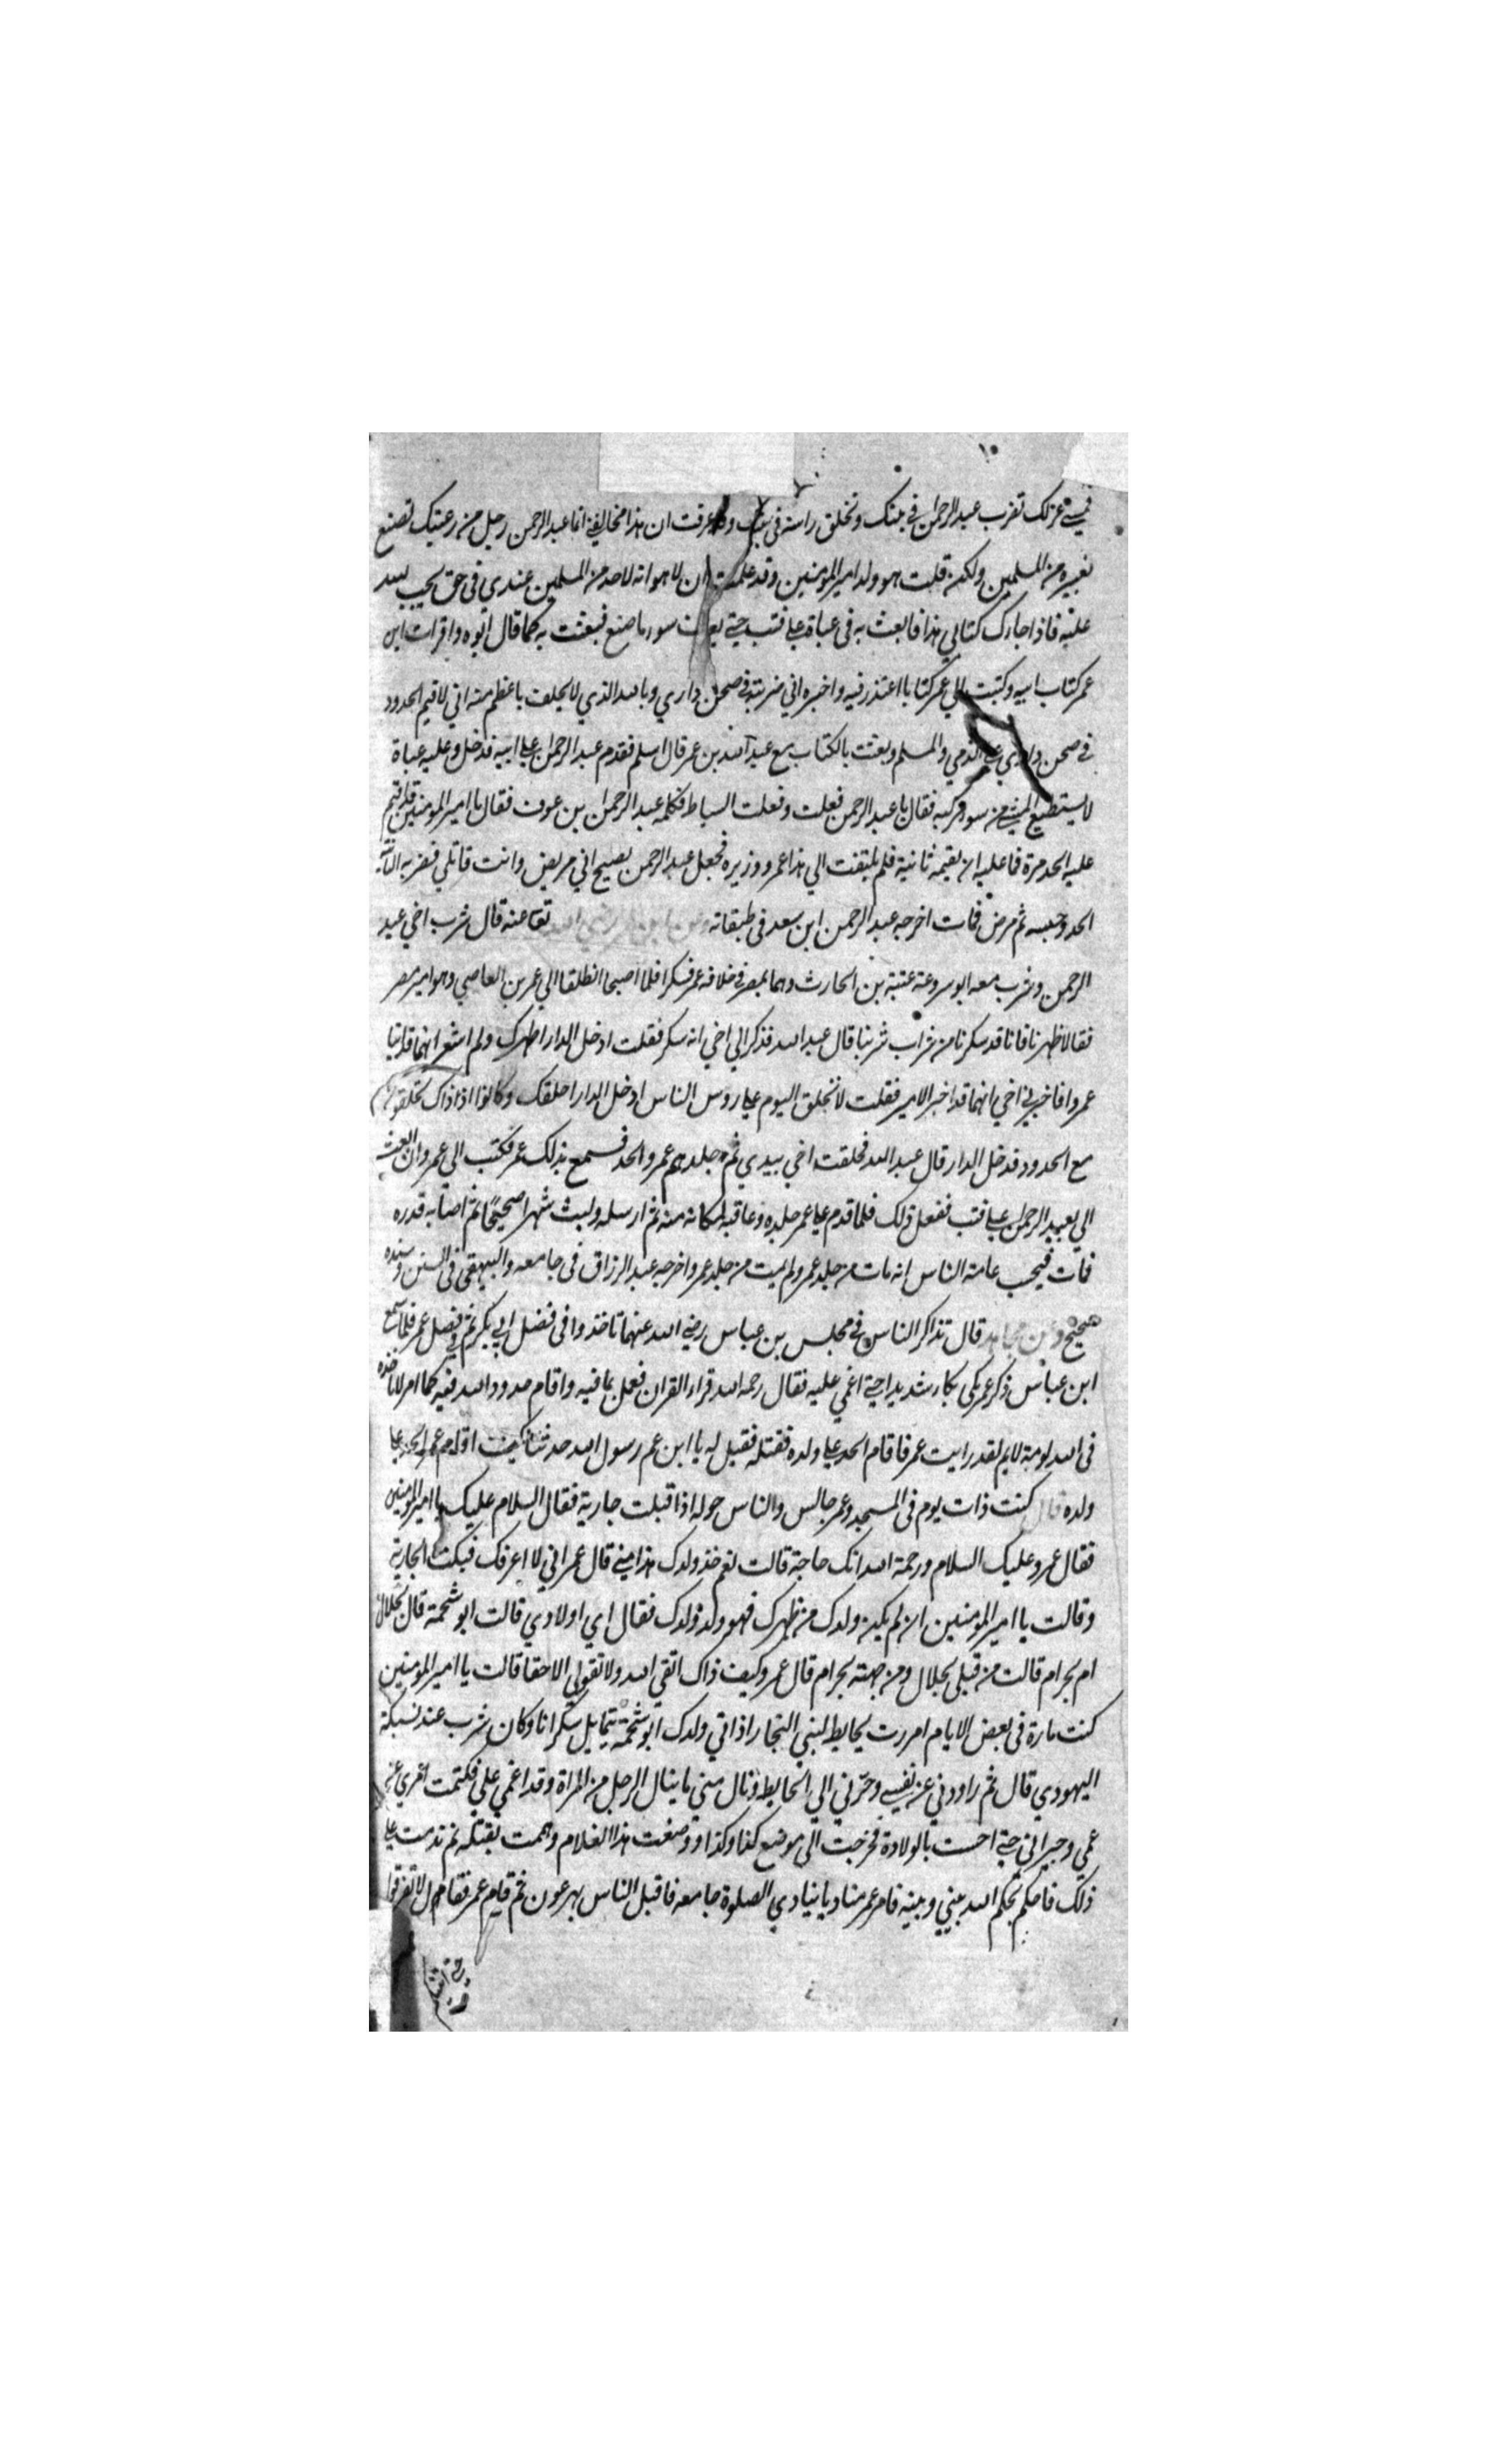 تضرب عبد الرحمن في بيتك وتحلق راسه في بيتك وقد عرفت ان هذا مخالفي انما عبد الرحمن رجل من رعيتك تصنع
بغيره من المسلمين ولكن قلت هو ولد امير المؤمنين وقد علمت ان لا هوانه لاحد من المسلمين عندي في حق يجب لله
عليه فاذا جاءك كتابي هذا فابعث به في عباة على قتب حتى يعرف سوء ما صنع فبعثت به كما قال ابوه واقرات ابن
عمر كتاب ابيه وكتبت الي عمر كتابا اعتذر فيه واخبره اني ضربته في صحن داري وبالله الذي لا يحلف باعظم منه اني لاقيم الحدود
في صحن داري على الذمي والمسلم وبعثت بالكتاب مع عبد الله بن عمر قال اسلم فقدم عبد الرحمن على ابيه فدخل وعليه عباة
لا يستطيع المشي من سوء مركبه فقال يا عبد الرحمن فعلت وفعلت السياط فكلمه عبد الرحمن بن عوف فقال يا امير المؤمنين قد اقيم
عليه الحد مرة فما عليه ان يقيمه ثانية فلم يلتفت الي هذا عمر ووزيره فجعل عبد الرحمن يصيح اني مريض وانت قاتلي فضربه
الحد وحبسه ثم مرض فمات اخرجه عبد الرحمن ابن سعد في طبقاته وعن ابن عمر رضي الله تعا عنه قال شرب اخي عبد
الرحمن وشرب معه ابو سروعة عتبة بن الحارث وهما بمصر في خلافه عمر فسكرا فلما اصبحا انطلقا الي عمر بن العاصي وهو امير مصر
فقالا طهرنا فانا قد سكرنا من شراب شربنا قال عبد الله فذكر الي اخي انه سكر فقلت ادخل الدار اطهرك ولم اشعر انهما قد اتيا
عمروا فاخبرني اخي انهما قد اخبر الامير فقلت لا تحلق اليوم على روس الناس ادخل الدار احلقك وكانوا اذ اذاك يحلقون
مع الحدود فدخل الدار قال عبد الله فحلقت اخي بيدي ثم جلدهم عمرو الحد فسمع بذلك عمر فكتب الي عمرو ان ابعث
الي بعبد الرحمن على قتب ففعل ذلك فلما قدم على عمر جلده وعاقبه لمكانه منه ثم ارسله ولبث شهرا صحيحا ثم اصابه قدره
فمات فيحسب عامة الناس انه مات من جلد عمر ولم يمت من جلد عمر واخرجه عبد الرزاق في جامعه والبيهقي في السنن وسنده
صحيح وعن مجاهد قال تذاكر الناس في مجلس بن عباس رضي الله عنهما فاخذوا في فضل ابي بكر ثم في فضل عمر فلما سمع
ابن عباس ذكر عمر بكى بكاء شديدا حتى اغمي عليه فقال رحمه الله قراء القران فعمل بما فيه واقام حدود الله فيه كما امر لا تاخذه
في الله لومة لايم لقد رايت عمر فاقام الحد على ولده فقتله فقيل له يا ابن عم رسول الله حدثنا كيف اقام عمر الحد على
ولده قال كنت ذات يوم في المسجد وعمر جالس والناس حوله اذا قبلت جارية فقال السلام عليك يا امير المؤمنين
فقال عمر وعليك السلام ورحمة الله الك حاجة قالت نعم خذ ولدك هذا مني قال عمر اني لا اعرفك فبكت الجارية
وقالت يا امير المؤمنين ان لم يكن ولدك من ظهرك فهو ولد ولدك فقال اي اولادي قالت ابو شحمة قال بحلال
ام بحرام قالت من قبلي بحلال ومن جهته بحرام قال عمر وكيف ذاك اتقي الله ولا تقولي الا حقا قالت يا امير المؤمنين
كنت مارة في بعض الايام امررت بحايط لبني النجار اذ اتي ولدك ابو شحمة يتمايل سكرانا وكان شرب عند نسيكة
اليهودي قال ثم راودني عن نفسي وجرني الي الحايط ونال مني ما ينال الرجل من المراة وقد اغمي علي فكتمت امري عن
عمي وجيراني حتى احست بالولادة فخرجت الي موضع كذا وكذا ووضعت هذا الغلام وهممت بقتله ثم ندمت على
ذلك فاحكم بحكم الله بيني وبينه فامر عمر مناديا ينادي الصلوة جامعه فاقبل الناس يهرعون ثم قام عمر فقال لا تفرقوا